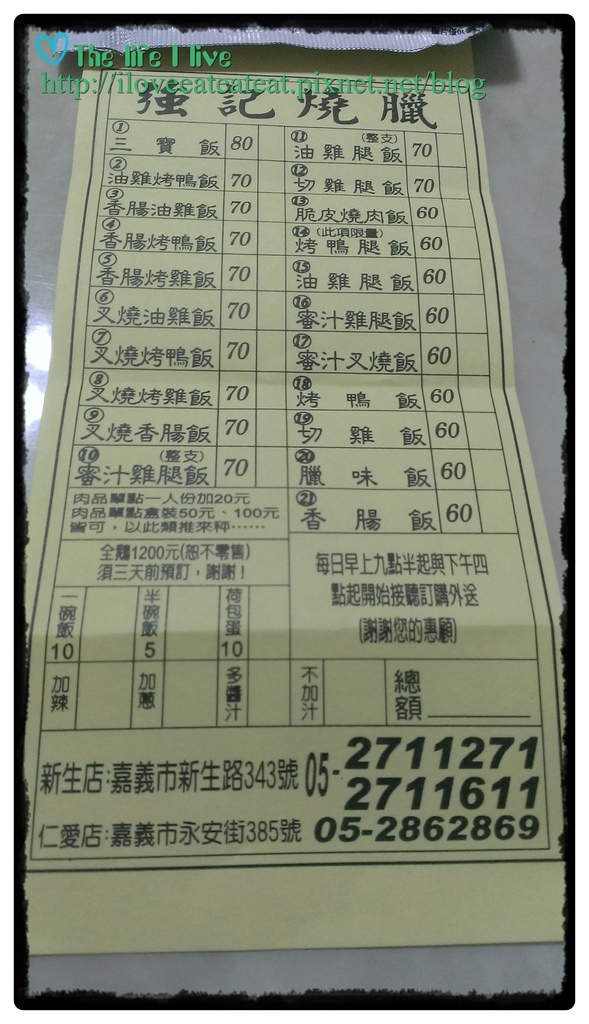 The life I live
http://iloveeateateat.pixnet.net/blog
強記燒臘
① 三寶飯 80
② 油雞烤鴨飯 70
③ 香腸油雞飯 70
④ 香腸烤鴨飯 70
⑤ 香腸烤雞飯 70
⑥ 叉燒油雞飯 70
⑦ 叉燒烤鴨飯 70
⑧ 叉燒烤雞飯 70
⑨ 叉燒香腸飯 70
⑩ (整支) 蜜汁雞腿飯 70
⑪ (整支) 油雞腿飯 70
⑫ 切雞腿飯 70
⑬ 脆皮燒肉飯 60
⑭ (此項限量) 烤鴨腿飯 60
⑮ 油雞腿飯 60
⑯ 蜜汁雞腿飯 60
⑰ 蜜汁叉燒飯 60
⑱ 烤鴨飯 60
⑲ 切雞飯 60
⑳ 臘味飯 60
㉑ 香腸飯 60
肉品單點一人份加20元
肉品單點盒裝50元、100元
皆可，以此類推來秤……
全鵝1200元(恕不零售)
須三天前預訂，謝謝！
每日早上九點半起與下午四
點起開始接聽訂購外送
(謝謝您的惠顧)
一碗飯 10
半碗飯 5
荷包蛋 10
加辣
加蔥
多醬汁
不加汁
總額
新生店:嘉義市新生路343號 05-2711271
2711611
仁愛店:嘉義市永安街385號 05-2862869